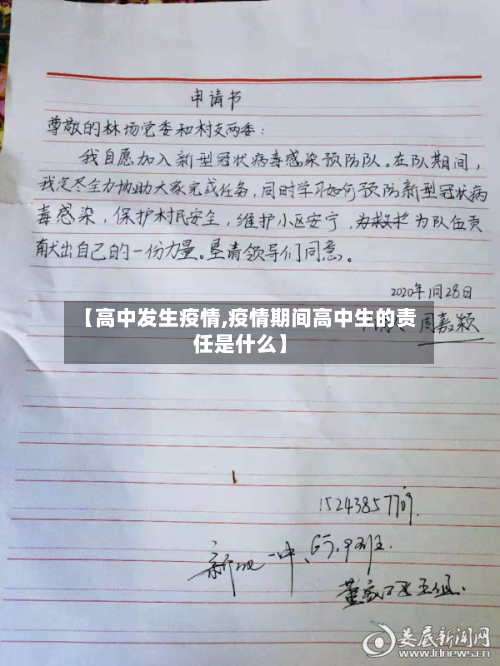 申请书
尊敬的林场党委和村支两委:
我自愿加入新型冠状病毒感染预防队。在队期间,
我定尽全力协助大家完成任务,同时学习如何预防新型冠状病
毒感染,保护村民安全,维护小区安宁,为救护为队伍贡
献出自己的一份力量。恳请领导们同意。
2020年1月28日
【高中发生疫情,疫情期间高中生的责
任是什么】
周嘉颖
一中、
娄底新闻网
www.ldnews.cn